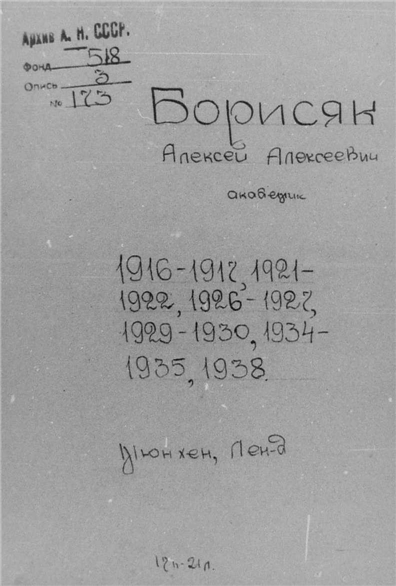 Архив А. Н. СССР.
Фонд 518
Опись 3
№ 173
Борисяк
Алексей Алексеевич
академик
1916-1917, 1921-
1922, 1926-1927,
1929-1930, 1934-
1935, 1938.
Мюнхен, Лен-д
17п-21л.